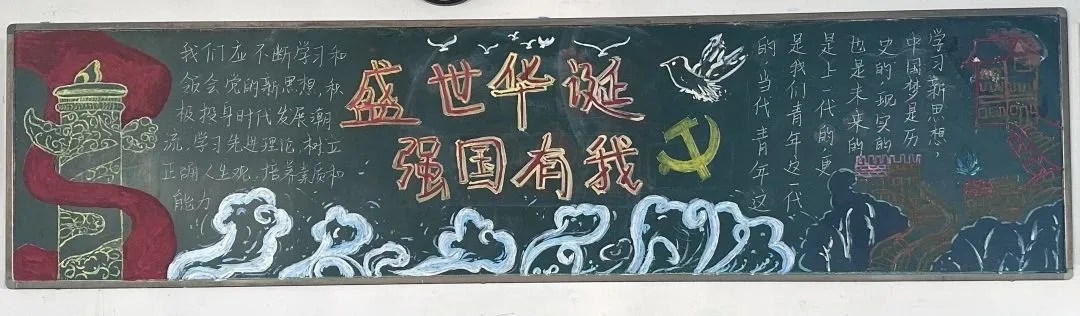 我们应不断学习和
领会党的新思想，积
极投身时代发展潮
流，学习先进理论，树立
正确人生观，培养素质和
能力
盛世华诞
强国有我
学习新思想，
中国梦是历
史的、现实的
也是未来的
是上一代的更
是我们青年这一代
的，当代青年这